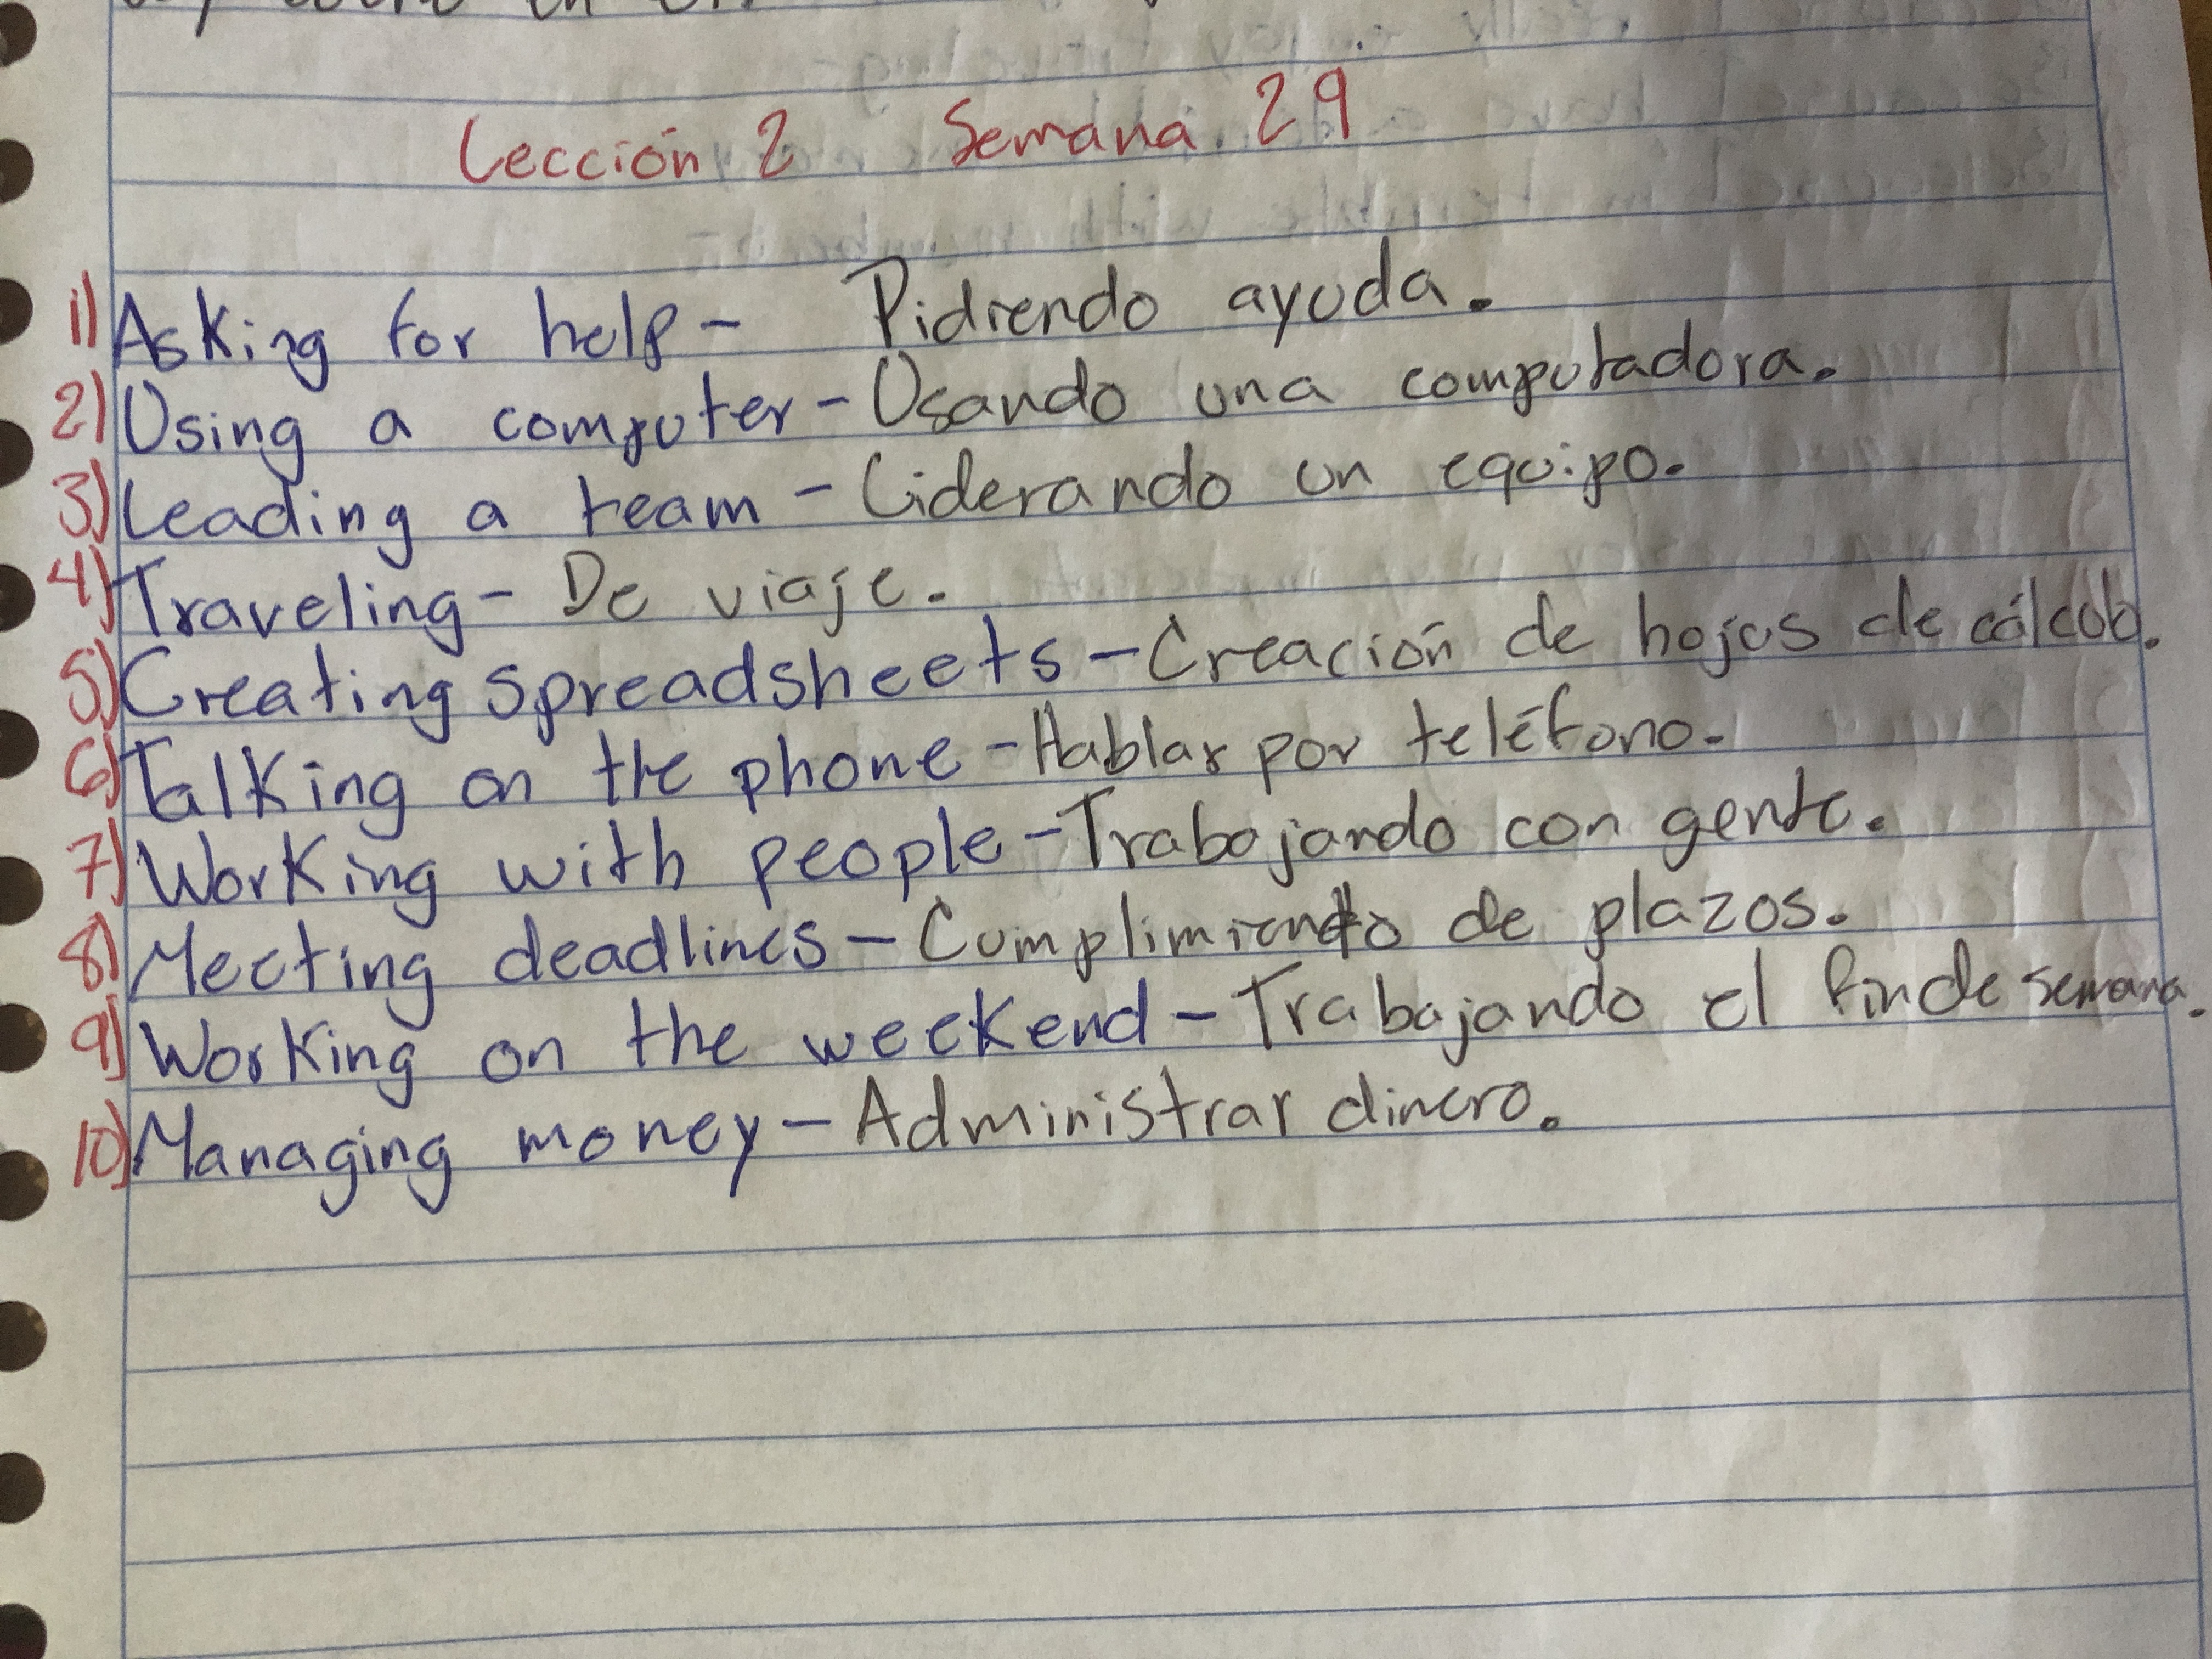 Lección 2 Semana 29
1) Asking for help - Pidiendo ayuda.
2) Using a computer - Usando una computadora.
3) Leading a team - Liderando un equipo.
4) Traveling - De viaje.
5) Creating spreadsheets - Creación de hojas de cálculo.
6) Talking on the phone - Hablar por teléfono.
7) Working with people - Trabajando con gente.
8) Meeting deadlines - Cumplimiento de plazos.
9) Working on the weekend - Trabajando el fin de semana.
10) Managing money - Administrar dinero.